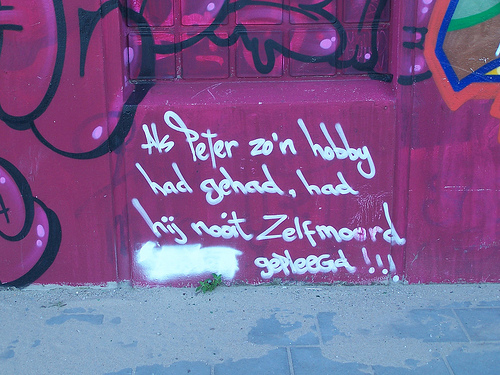 Als Peter zo'n hobby
had gehad, had
hij nooit Zelfmoord
gepleegd !!!